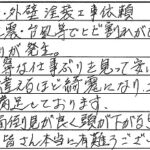 ・外壁塗装工事依頼
震・台風等でヒビ割れが
りが発生。
寧な仕事ぶりを見って安
違えるほど綺麗になり、
満足しております。
面倒見が良く頭が下がる
皆さん本当に有難うござ